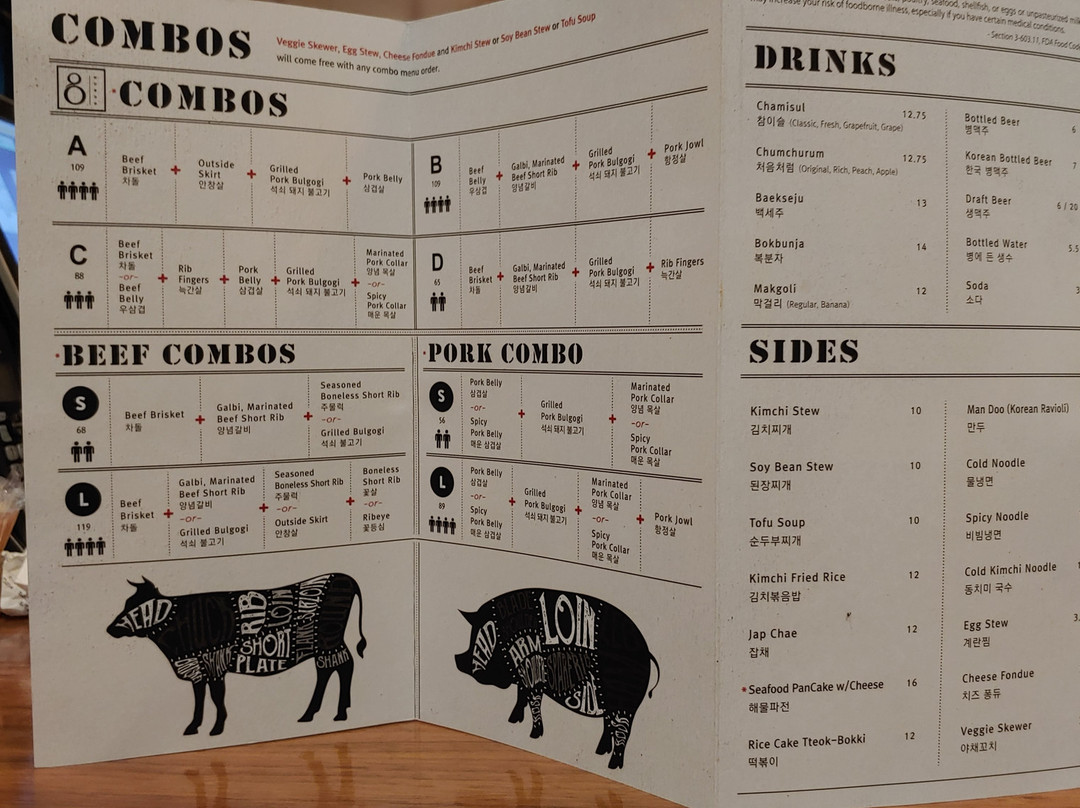 COMBOS
Veggie Skewer, Egg Stew, Cheese Fondue and Kimchi Stew or Soy Bean Stew or Tofu Soup
will come free with any combo menu order.
8 COMBOS
A
109
Beef
Brisket
차돌
+
Outside
Skirt
안창살
+
Grilled
Pork Bulgogi
석쇠 돼지 불고기
+
Pork Belly
삼겹살
B
109
Beef
Belly
우삼겹
+
Galbi, Marinated
Beef Short Rib
양념갈비
+
Grilled
Pork Bulgogi
석쇠 돼지 불고기
+
Pork Jowl
항정살
C
88
Beef
Brisket
차돌
-or-
Beef
Belly
우삼겹
+
Rib
Fingers
늑간살
+
Pork
Belly
삼겹살
+
Grilled
Pork Bulgogi
석쇠 돼지 불고기
+
Marinated
Pork Collar
양념 목살
-or-
Spicy
Pork Collar
매운 목살
D
65
Beef
Brisket
차돌
+
Galbi, Marinated
Beef Short Rib
양념갈비
+
Grilled
Pork Bulgogi
석쇠 돼지 불고기
+
Rib Fingers
늑간살
BEEF COMBOS
S
68
Beef Brisket
차돌
+
Galbi, Marinated
Beef Short Rib
양념갈비
+
Seasoned
Boneless Short Rib
주물럭
-or-
Grilled Bulgogi
석쇠 불고기
L
119
Beef
Brisket
차돌
+
Galbi, Marinated
Beef Short Rib
양념갈비
-or-
Grilled Bulgogi
석쇠 불고기
+
Seasoned
Boneless Short Rib
주물럭
-or-
Outside Skirt
안창살
+
Boneless
Short Rib
꽃살
-or-
Ribeye
꽃등심
PORK COMBO
S
56
Pork Belly
삼겹살
-or-
Spicy
Pork Belly
매운 삼겹살
+
Grilled
Pork Bulgogi
석쇠 돼지 불고기
+
Marinated
Pork Collar
양념 목살
-or-
Spicy
Pork Collar
매운 목살
L
89
Pork Belly
삼겹살
-or-
Spicy
Pork Belly
매운 삼겹살
+
Grilled
Pork Bulgogi
석쇠 돼지 불고기
+
Marinated
Pork Collar
양념 목살
-or-
Spicy
Pork Collar
매운 목살
+
Pork Jowl
항정살
HEAD
CHUCK
RIB
LOIN
SHORT
PLATE
SHANK
HEAD
LOIN
ARM
SIDE
poultry, seafood, shellfish, or eggs or unpasteurized
may increase your risk of foodborne illness, especially if you have certain medical conditions.
- Section 3-603.11, FDA Food
DRINKS
Chamisul 12.75
참이슬 (Classic, Fresh, Grapefruit, Grape)
Chumchurum 12.75
처음처럼 (Original, Rich, Peach, Apple)
Baekseju 13
백세주
Bokbunja 14
복분자
Makgoli 12
막걸리 (Regular, Banana)
Bottled Beer 6
병맥주
Korean Bottled Beer 7
한국 병맥주
Draft Beer 6 / 20
생맥주
Bottled Water 5.5
병에 든 생수
Soda 3
소다
SIDES
Kimchi Stew 10
김치찌개
Soy Bean Stew 10
된장찌개
Tofu Soup 10
순두부찌개
Kimchi Fried Rice 12
김치볶음밥
Jap Chae 12
잡채
Seafood PanCake w/Cheese 16
해물파전
Rice Cake Tteok-Bokki 12
떡볶이
Man Doo (Korean Ravioli)
만두
Cold Noodle
물냉면
Spicy Noodle
비빔냉면
Cold Kimchi Noodle
동치미 국수
Egg Stew 3.
계란찜
Cheese Fondue
치즈 퐁듀
Veggie Skewer
야채꼬치